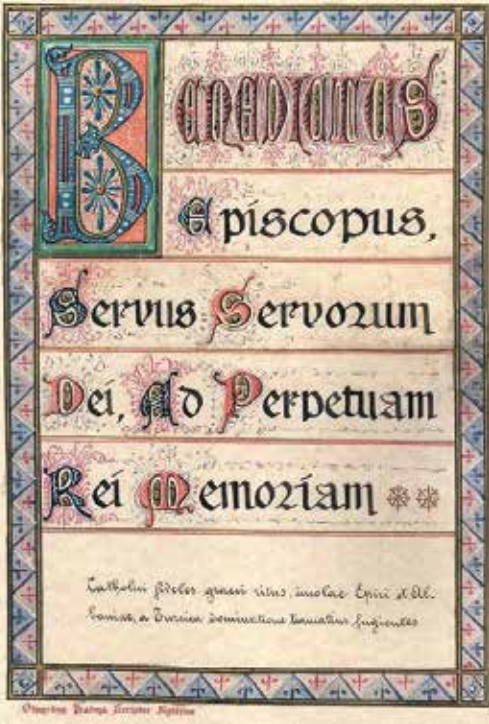 Benedictus
Episcopus,
Servus Servorum
Dei, Ad Perpetuam
Rei Memoriam
Catholici fideles graeci ritus, incolae Epiri et Al-
baniae, a Turcica dominatione fugientes